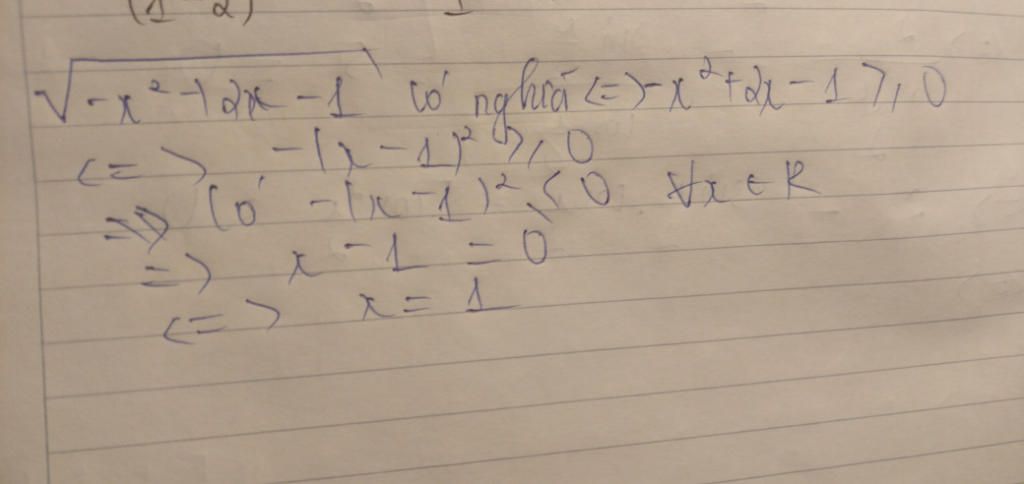 (1-2) 1
√(-x²+2x-1) Có nghĩa <=> -x²+2x-1 ⩾ 0
<=> -(x-1)² ⩾ 0
=> Có -(x-1)² ⩽ 0 ∀x ∈ R
=> x-1 = 0
<=> x = 1